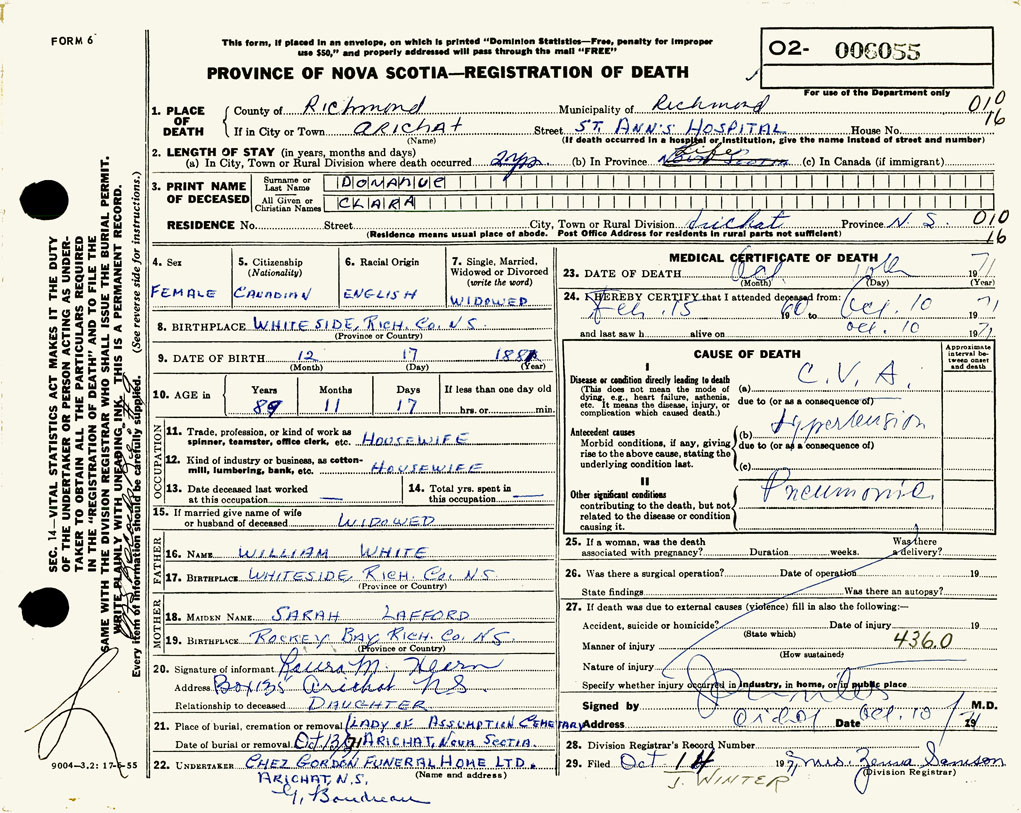 FORM 6
This form, if placed in an envelope, on which is printed "Dominion Statistics—Free, penalty for improper
use $50," and properly addressed will pass through the mail "FREE"
PROVINCE OF NOVA SCOTIA—REGISTRATION OF DEATH
02- 006055
For use of the Department only
1. PLACE OF DEATH County of Richmond Municipality of Richmond 010
If in City or Town ARICHAT Street ST. ANN'S HOSPITAL House No. 16
(Name) (If death occurred in a hospital or institution, give the name instead of street and number)
2. LENGTH OF STAY (in years, months and days)
(a) In City, Town or Rural Division where death occurred 2 yrs (b) In Province Life (c) In Canada (if immigrant)
3. PRINT NAME OF DECEASED Surname or Last Name DONAHUE
All Given or Christian Names CLARA
RESIDENCE No. Street City, Town or Rural Division Arichat Province N.S. 010
(Residence means usual place of abode. Post Office Address for residents in rural parts not sufficient) 16
4. Sex FEMALE
5. Citizenship (Nationality) CANADIAN
6. Racial Origin ENGLISH
7. Single, Married, Widowed or Divorced (write the word) WIDOWED
8. BIRTHPLACE WHITESIDE, RICH. CO. N.S.
(Province or Country)
9. DATE OF BIRTH 12 17
(Month) (Day) (Year)
10. AGE in Years Months Days If less than one day old
11 17 hrs. or min.
OCCUPATION
11. Trade, profession, or kind of work as spinner, teamster, office clerk, etc. HOUSEWIFE
12. Kind of industry or business, as cotton-mill, lumbering, bank, etc. HOUSEWIFE
13. Date deceased last worked at this occupation —
14. Total yrs. spent in this occupation —
15. If married give name of wife or husband of deceased WIDOWED
FATHER
16. NAME WILLIAM WHITE
17. BIRTHPLACE WHITESIDE, RICH. CO. N.S.
(Province or Country)
MOTHER
18. MAIDEN NAME SARAH LAFFORD
19. BIRTHPLACE ROCKEY BAY RICH. CO. N.S.
(Province or Country)
20. Signature of informant Laura M. Hearn
Address Box 135 Arichat N.S.
Relationship to deceased DAUGHTER
21. Place of burial, cremation or removal LADY OF ASSUMPTION CEMETARY
Date of burial or removal Oct 13/71 ARICHAT, NOVA SCOTIA.
22. UNDERTAKER CHEZ GORDON FUNERAL HOME LTD.
(Name and address)
ARICHAT, N.S.
G. Boudreau
9004—3.2: 17-6-55
MEDICAL CERTIFICATE OF DEATH
23. DATE OF DEATH Oct 10th 1971
(Month) (Day) (Year)
24. I HEREBY CERTIFY that I attended deceased from:
Feb. 15 1960 to Oct. 10 1971
and last saw h alive on Oct. 10 1971
CAUSE OF DEATH
Approximate interval between onset and death
I
Disease or condition directly leading to death
(This does not mean the mode of dying, e.g., heart failure, asthenia, etc. It means the disease, injury, or complication which caused death.)
(a) C.V.A.
due to (or as a consequence of)
Antecedent causes
Morbid conditions, if any, giving rise to the above cause, stating the underlying condition last.
(b) Hypertension
due to (or as a consequence of)
(c)
II
Other significant conditions
contributing to the death, but not related to the disease or condition causing it.
Pneumonia
25. If a woman, was the death associated with pregnancy? Duration weeks. Was there a delivery?
26. Was there a surgical operation? Date of operation 19
State findings Was there an autopsy?
27. If death was due to external causes (violence) fill in also the following:—
Accident, suicide or homicide? Date of injury 19
(State which)
Manner of injury 436.0
(How sustained)
Nature of injury
Specify whether injury occurred in industry, in home, or in public place
Signed by M.D.
Address Date Oct. 10 1971
28. Division Registrar's Record Number
29. Filed Oct 14 1971 Mrs. Zenna Samson
(Division Registrar)
J. WINTER
SEC. 14—VITAL STATISTICS ACT MAKES IT THE DUTY
OF THE UNDERTAKER OR PERSON ACTING AS UNDER-
TAKER TO OBTAIN ALL THE PARTICULARS REQUIRED
IN THE "REGISTRATION OF DEATH" AND TO FILE THE
SAME WITH THE DIVISION REGISTRAR WHO SHALL ISSUE THE BURIAL PERMIT.
WRITE PLAINLY WITH UNFADING INK. THIS IS A PERMANENT RECORD.
Every item of information should be carefully supplied. (See reverse side for instructions.)